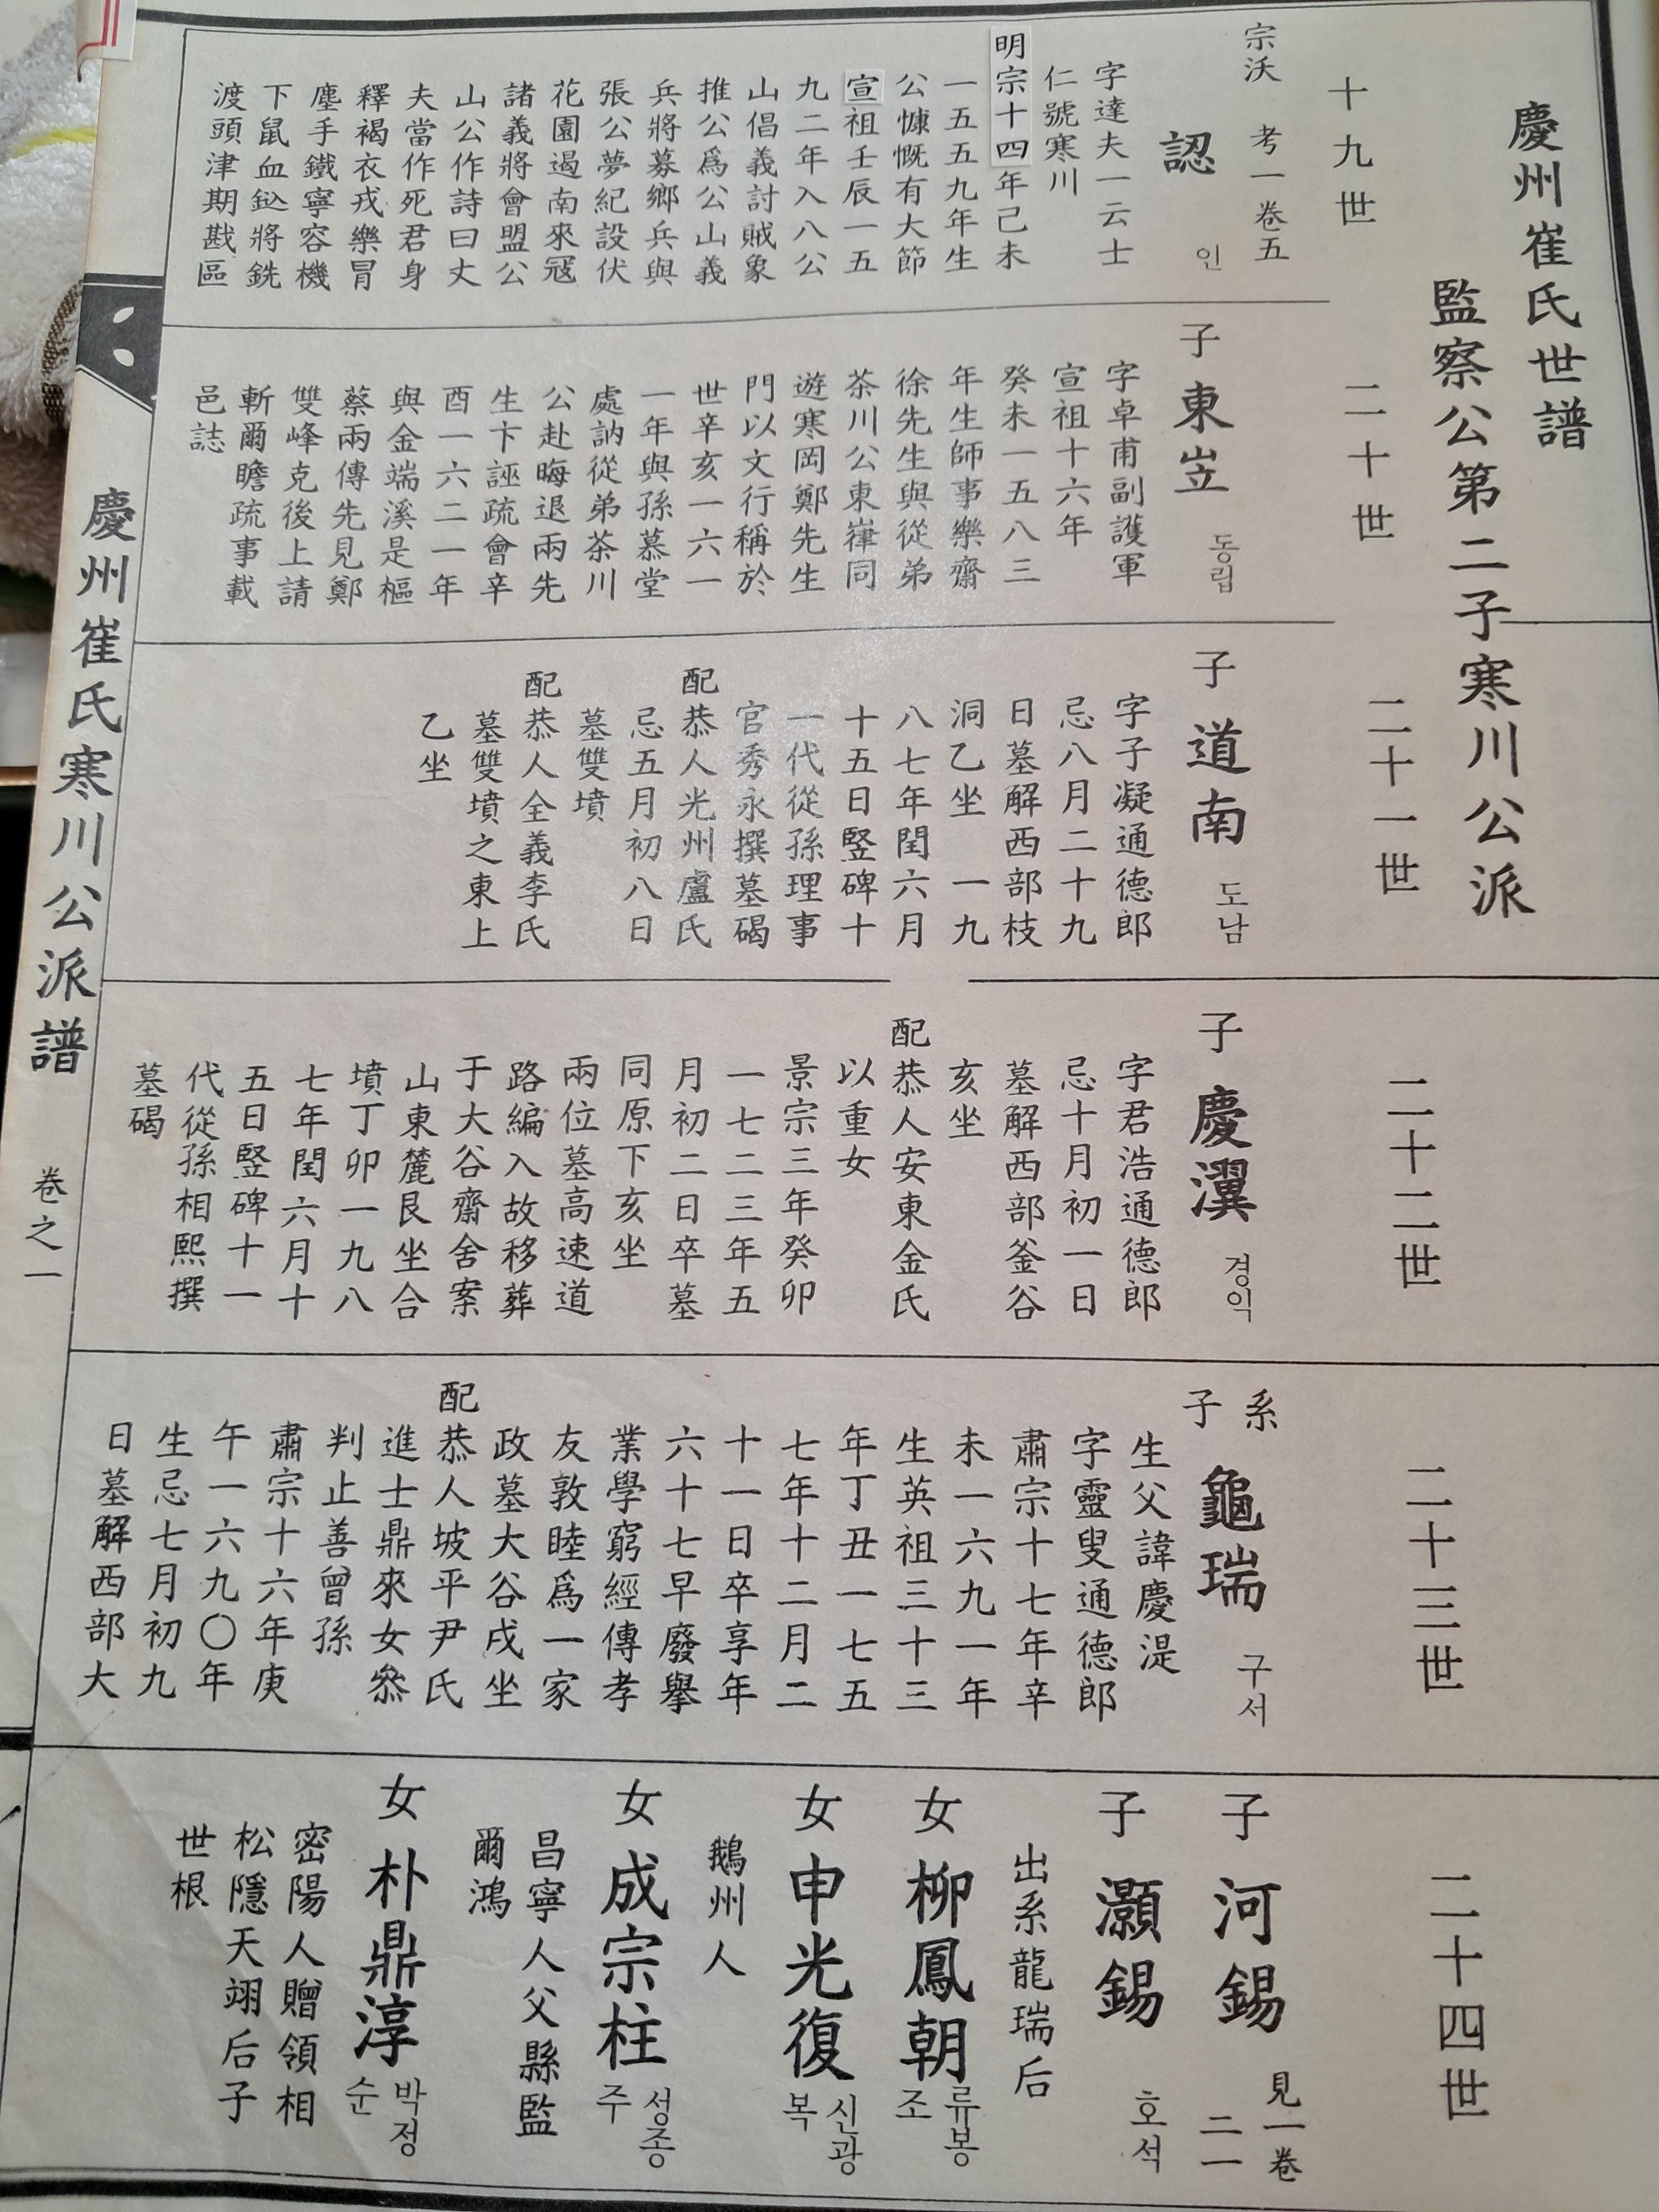 慶州崔氏世譜
監察公第二子寒川公派
十九世
宗沃
考一卷五
認
인
字達夫一云士
仁號寒川
明宗十四年己未
一五五九年生
公慷慨有大節
宣祖壬辰一五
九二年入八公
山倡義討賊象
推公爲公山義
兵將募鄉兵與
張公夢紀設伏
花園遏南來冦
諸義將會盟公
山公作詩曰丈
夫當作死君身
釋褐衣戎樂冒
塵手鐵寧容機
下鼠血
將銑
渡頭津期戡區
二十世
子
東岦
동립
字卓甫副護軍
宣祖十六年
癸未一五八三
年生師事樂齋
徐先生與從弟
茶川公東嵂同
遊寒岡鄭先生
門以文行稱於
世辛亥一六一
一年與孫慕堂
處訥從弟茶川
公赴晦退兩先
生卞誣疏會辛
酉一六二一年
與金端溪是樞
蔡兩傳先見鄭
雙峰克後上請
斬爾瞻疏事載
邑誌
二十一世
子
道南
도남
字子凝通德郎
忌八月二十九
日墓解西部枝
洞乙坐一九
八七年閏六月
十五日竪碑十
一代從孫理事
官秀永撰墓碣
配恭人光州盧氏
忌五月初八日
墓雙墳
配恭人全義李氏
墓雙墳之東上
乙坐
二十二世
子
慶瀷
경익
字君浩通德郎
忌十月初一日
墓解西部釜谷
亥坐
配恭人安東金氏
以重女
景宗三年癸卯
一七二三年五
月初二日卒墓
同原下亥坐
兩位墓高速道
路編入故移葬
于大谷齋舍案
山東麓艮坐合
墳丁卯一九八
七年閏六月十
五日竪碑十一
代從孫相熙撰
墓碣
二十三世
系
子
龜瑞
구서
生父諱慶湜
字靈叟通德郎
肅宗十七年辛
未一六九一年
生英祖三十三
年丁丑一七五
七年十二月二
十一日卒享年
六十七早廢擧
業學窮經傳孝
友敦睦爲一家
政墓大谷戌坐
配恭人坡平尹氏
進士鼎來女叅
判止善曾孫
肅宗十六年庚
午一六九〇年
生忌七月初九
日墓解西部大
二十四世
子
河錫
見一卷
二一
子
灝錫
호석
出系龍瑞后
女
柳鳳朝
류봉
조
女
申光復
신광
복
鵝州人
女
成宗柱
성종
주
昌寧人父縣監
爾鴻
女
朴鼎淳
박정
순
密陽人贈領相
松隱天翊后子
世根
慶州崔氏寒川公派譜
卷之一